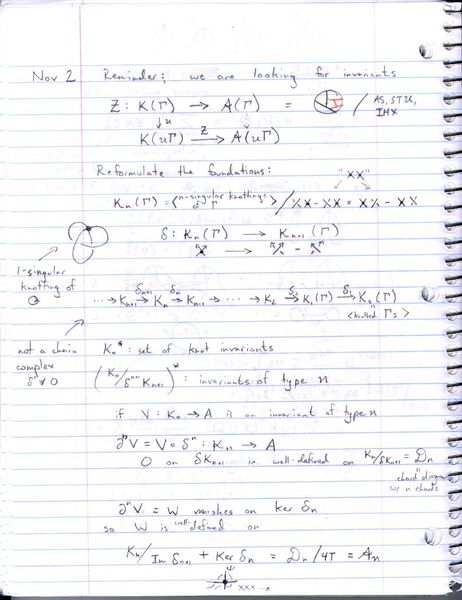 Nov 2 Reminder: we are looking for invariants
Z: K(Γ) → A(Γ) = / AS, STU, IHX
↓u ↓
K(uΓ) →Z A(uΓ)
Reformulate the foundations:
"XX"
Kn(Γ) = <n-singular knottings of Γ> / XX - XX = XX - XX
δ: Kn(Γ) → Kn-1(Γ)
→ -
1-singular
knotting of
O
··· → Kn+1 →δn+1 Kn →δn Kn-1 → ··· → K2 →δ2 K1(Γ) →δ1 K0(Γ)
"
<knotted Γs>
not a chain
complex
δ² ≠ 0
K0* : set of knot invariants
(K0/δⁿ⁺¹ Kn+1)* : invariants of type n
if V: K0 → A is an invariant of type n
∂ⁿV = V∘δⁿ: Kn → A
0 on δKn+1 is well-defined on Kn/δKn+1 = Dn
"
chord diagrams
w/ n chords
∂ⁿV = W vanishes on ker δn
so W is well-defined on
Kn/Im δn+1 + Ker δn = Dn/4T = An
Ψ
xxx...x